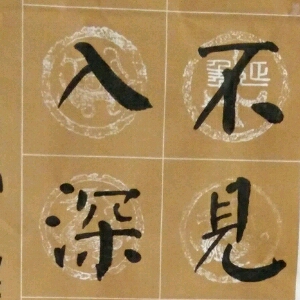 不見
入深